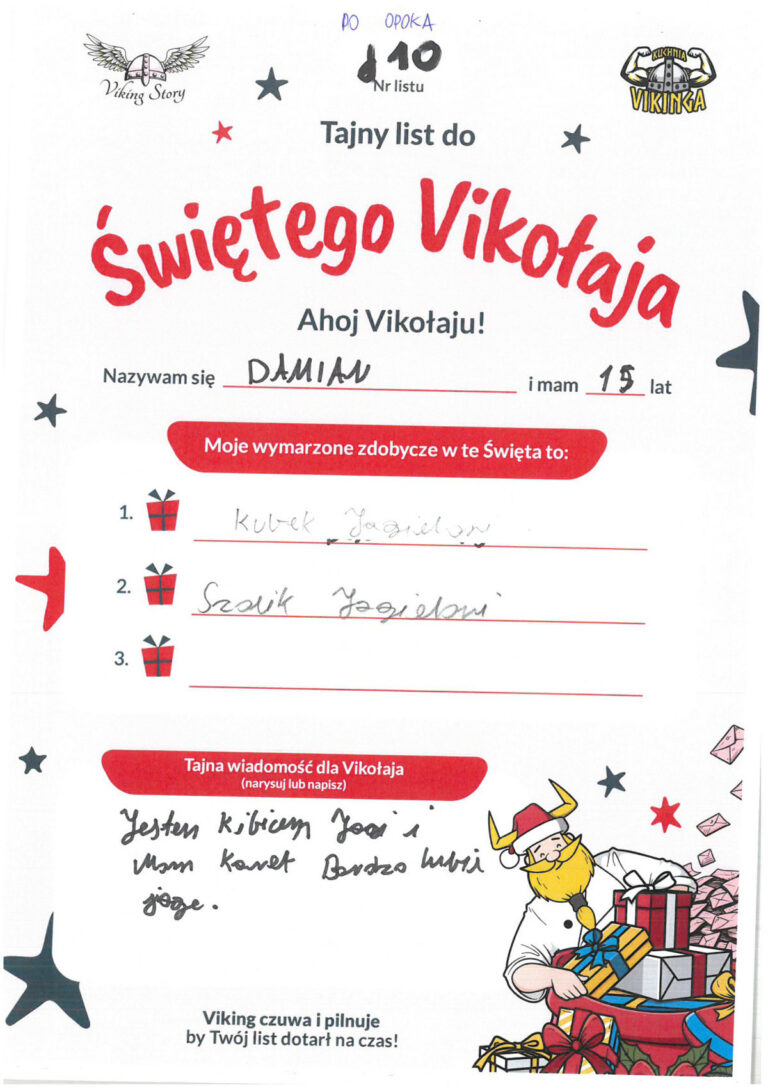 PO OPOKA
110
Nr listu
Viking Story
KUCHNIA
VIKINGA
Tajny list do
Świętego Vikołaja
Ahoj Vikołaju!
Nazywam się DAMIAN i mam 15 lat
Moje wymarzone zdobycze w te Święta to:
1. Kubek
2. Szalik
3.
Tajna wiadomość dla Vikołaja
(narysuj lub napisz)
Jestem kibicem Jagi i
Mam Bardzo lubię
jagę.
Viking czuwa i pilnuje
by Twój list dotarł na czas!